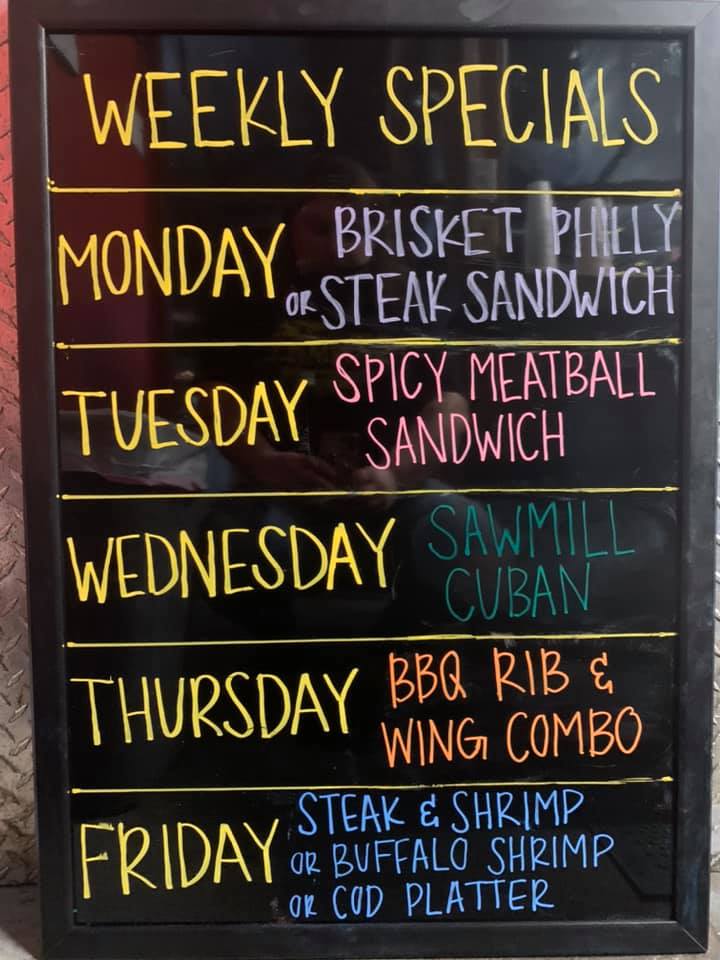 WEEKLY SPECIALS
MONDAY BRISKET PHILLY
OR STEAK SANDWICH
TUESDAY SPICY MEATBALL
SANDWICH
WEDNESDAY SAWMILL
CUBAN
THURSDAY BBQ RIB &
WING COMBO
FRIDAY STEAK & SHRIMP
OR BUFFALO SHRIMP
OR COD PLATTER